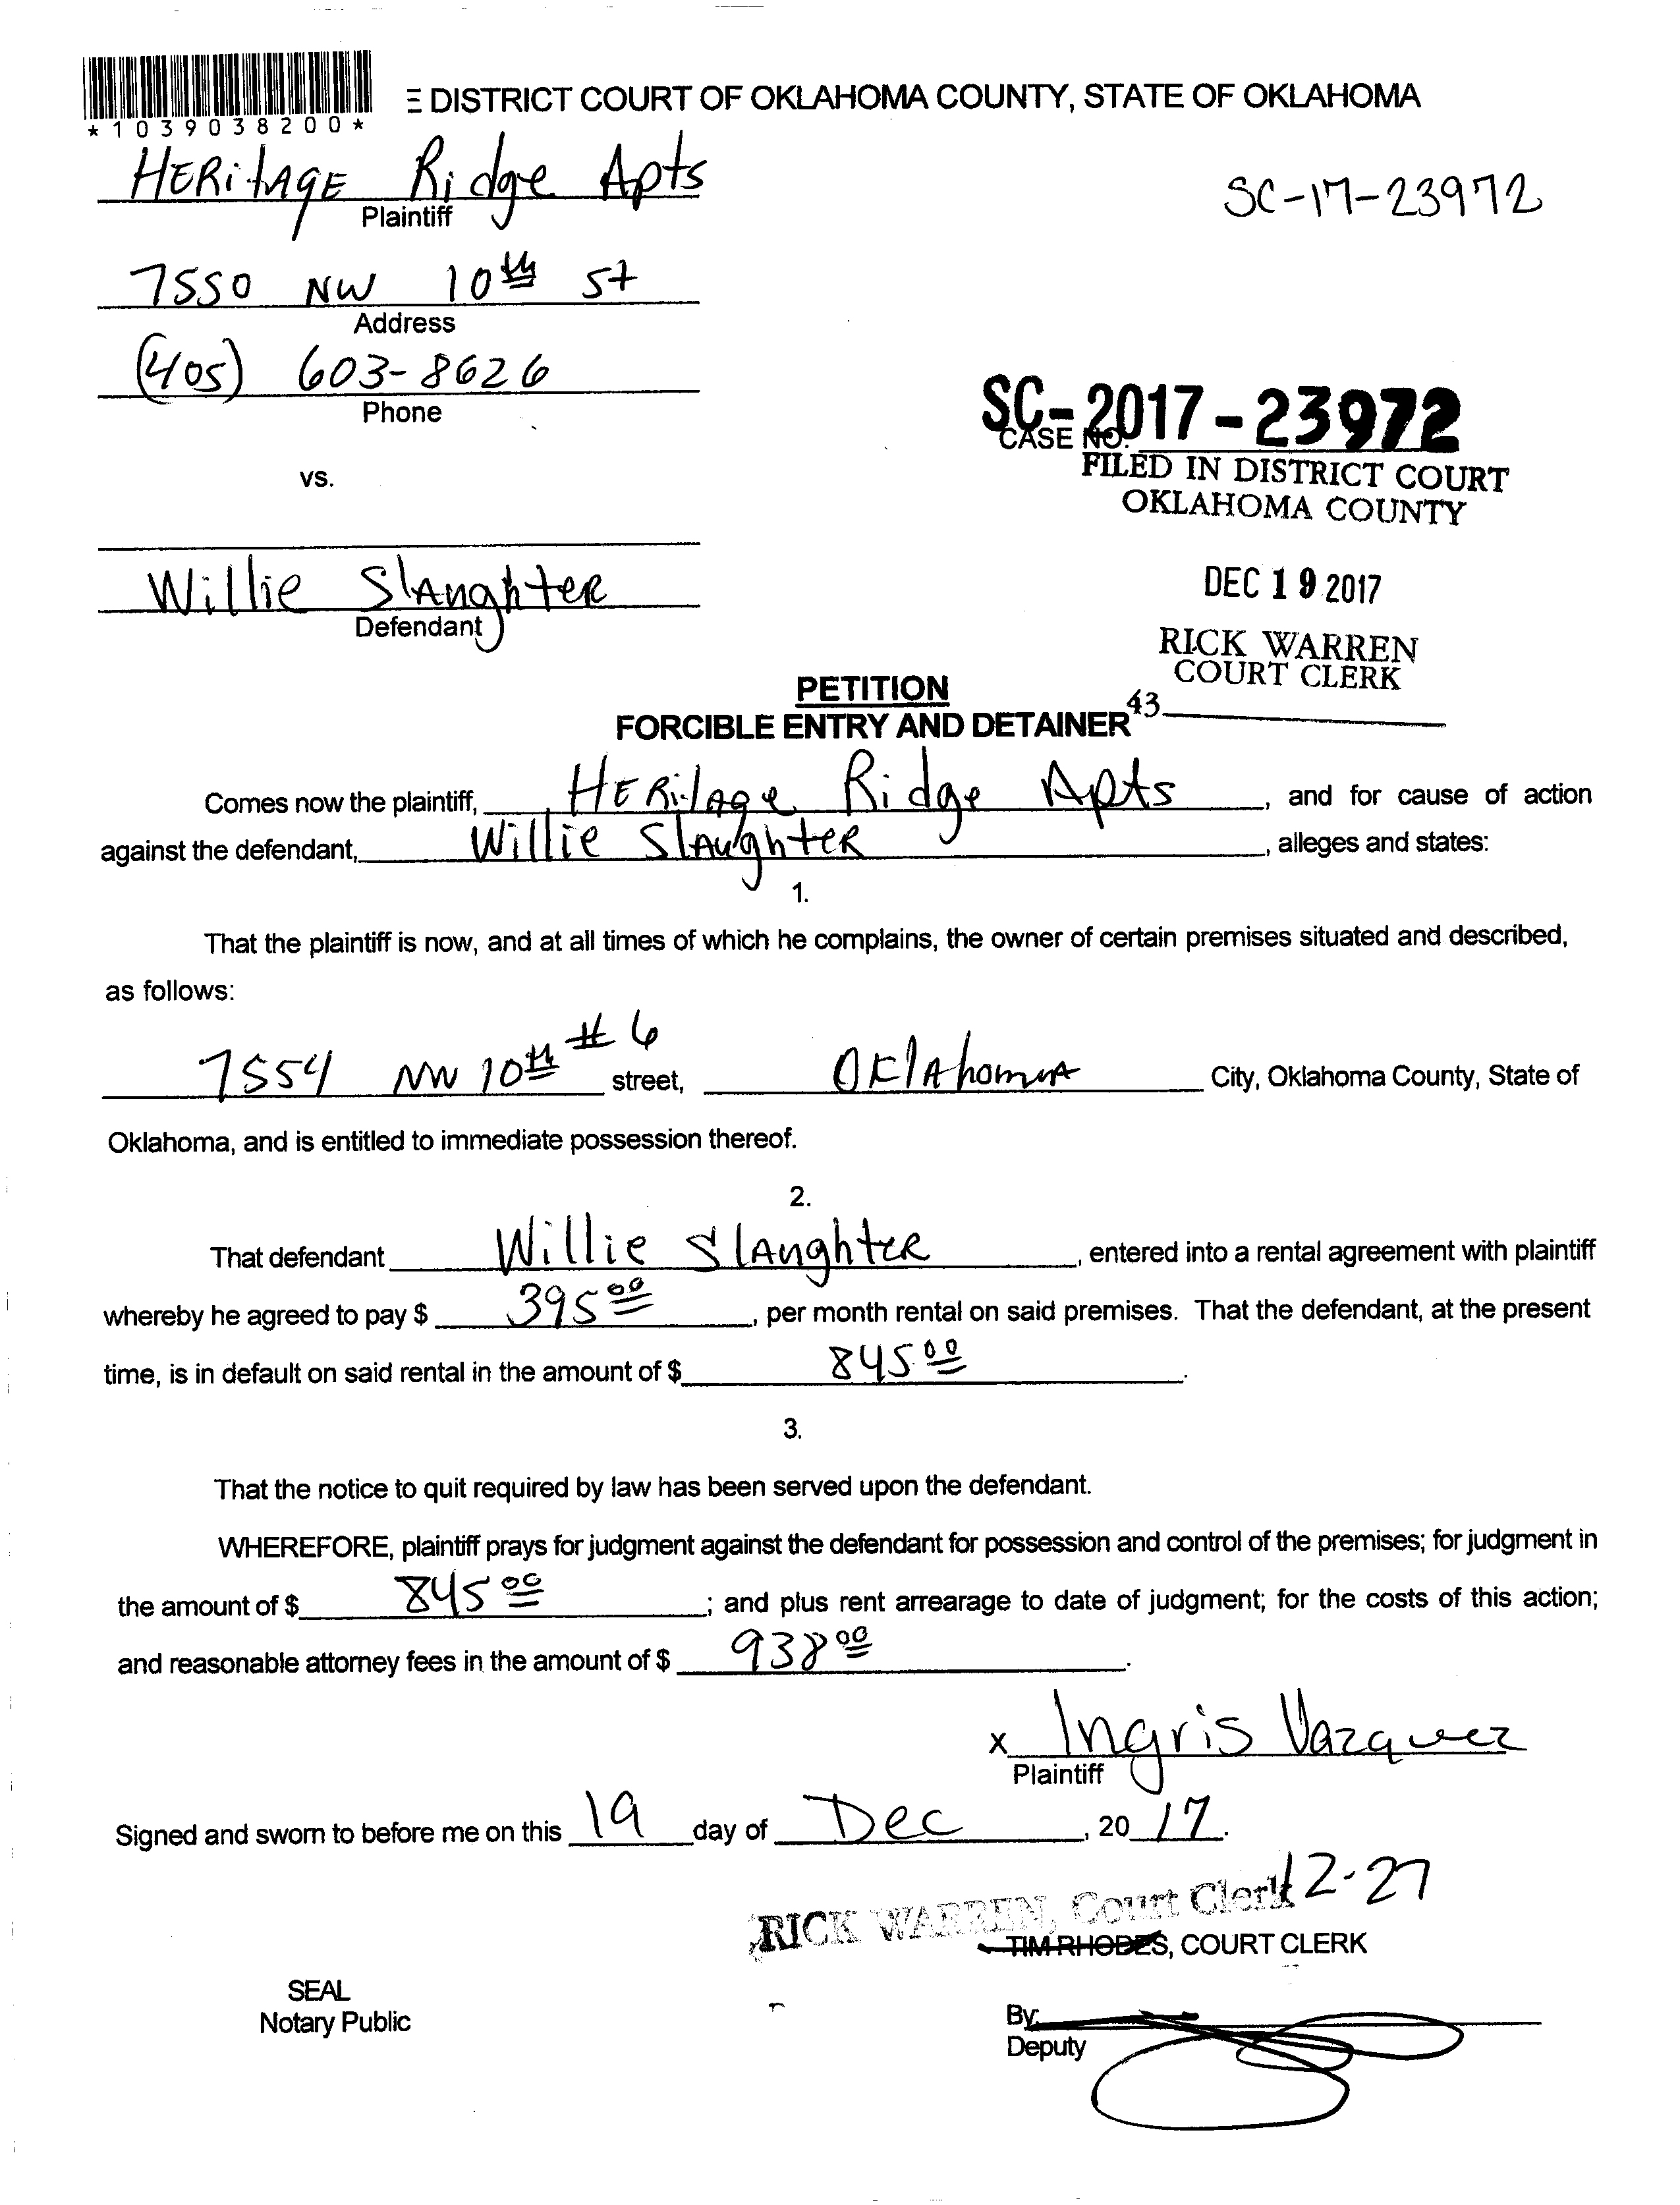 *1039038200*
E DISTRICT COURT OF OKLAHOMA COUNTY, STATE OF OKLAHOMA
HERitAGE Ridge Apts
Plaintiff
SC-17-23972
7550 NW 10th St
Address
(405) 603-8626
Phone
SC-2017-23972
CASE NO.
FILED IN DISTRICT COURT
OKLAHOMA COUNTY
vs.
DEC 19 2017
Willie Slaughter
Defendant
RICK WARREN
COURT CLERK
43
PETITION
FORCIBLE ENTRY AND DETAINER
Comes now the plaintiff, HERitage Ridge Apts, and for cause of action
against the defendant, Willie Slaughter, alleges and states:
1.
That the plaintiff is now, and at all times of which he complains, the owner of certain premises situated and described,
as follows:
7554 NW 10th #6 street, Oklahoma City, Oklahoma County, State of
Oklahoma, and is entitled to immediate possession thereof.
2.
That defendant Willie Slaughter, entered into a rental agreement with plaintiff
whereby he agreed to pay $ 395 00, per month rental on said premises. That the defendant, at the present
time, is in default on said rental in the amount of $ 845 00.
3.
That the notice to quit required by law has been served upon the defendant.
WHEREFORE, plaintiff prays for judgment against the defendant for possession and control of the premises; for judgment in
the amount of $ 845 00; and plus rent arrearage to date of judgment; for the costs of this action;
and reasonable attorney fees in the amount of $ 938 00.
x Ingris Vazquez
Plaintiff
Signed and sworn to before me on this 19 day of Dec, 20 17.
12-27
RICK WARREN, Court Clerk
TIM RHODES, COURT CLERK
SEAL
Notary Public
By
Deputy